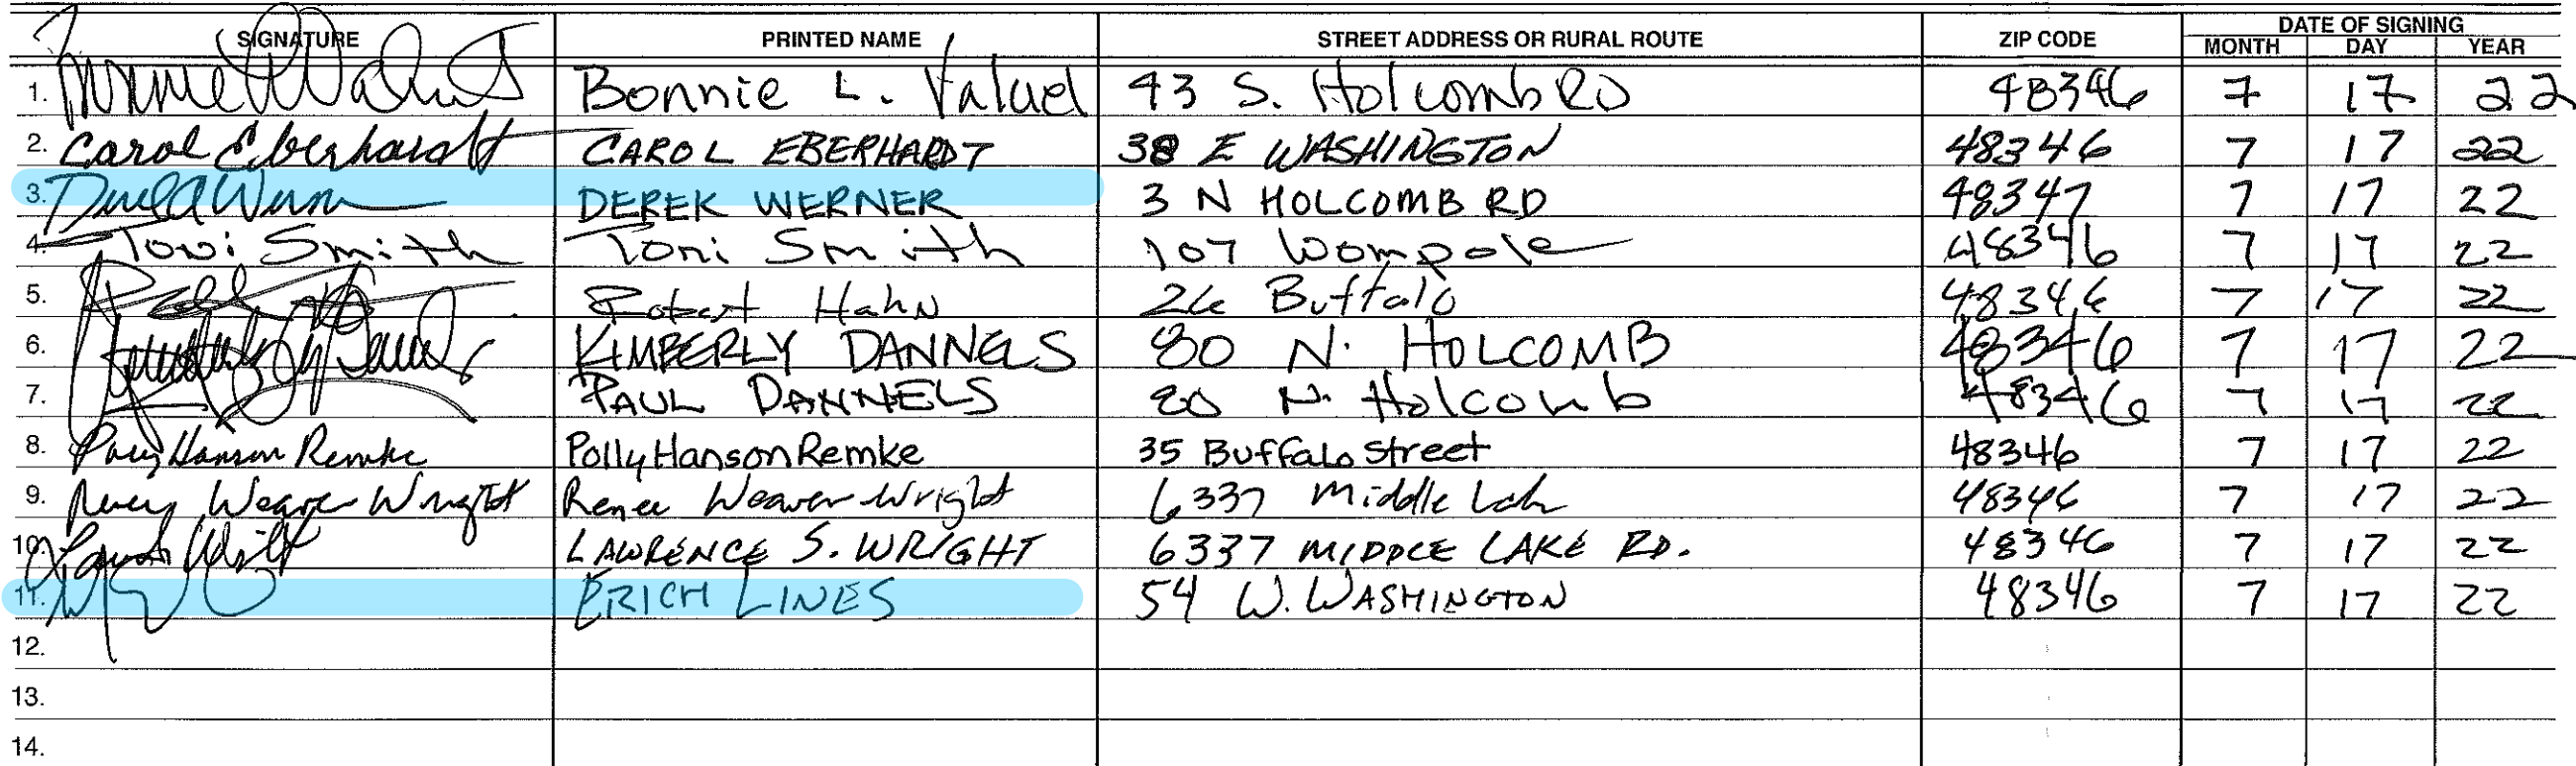 SIGNATURE PRINTED NAME STREET ADDRESS OR RURAL ROUTE ZIP CODE DATE OF SIGNING
MONTH DAY YEAR
1. Bonnie L. Valuet 43 S. Holcomb RD 48346 7 17 22
2. Carol Eberhardt CAROL EBERHARDT 38 E WASHINGTON 48346 7 17 22
3. DEREK WERNER 3 N HOLCOMB RD 48347 7 17 22
4. Toni Smith Toni Smith 107 Wompole 48346 7 17 22
5. Robert Hahn 26 Buffalo 48346 7 17 22
6. KIMBERLY DANNELS 80 N. HOLCOMB 48346 7 17 22
7. PAUL DANNELS 80 N. Holcomb 48346 7 17 22
8. Polly Hanson Remke Polly Hanson Remke 35 Buffalo Street 48346 7 17 22
9. Renee Weaver Wright Renee Weaver-Wright 6337 Middle Lake 48346 7 17 22
10. LAWRENCE S. WRIGHT 6337 MIDDLE LAKE RD. 48346 7 17 22
11. ERICH LINES 54 W. WASHINGTON 48346 7 17 22
12.
13.
14.